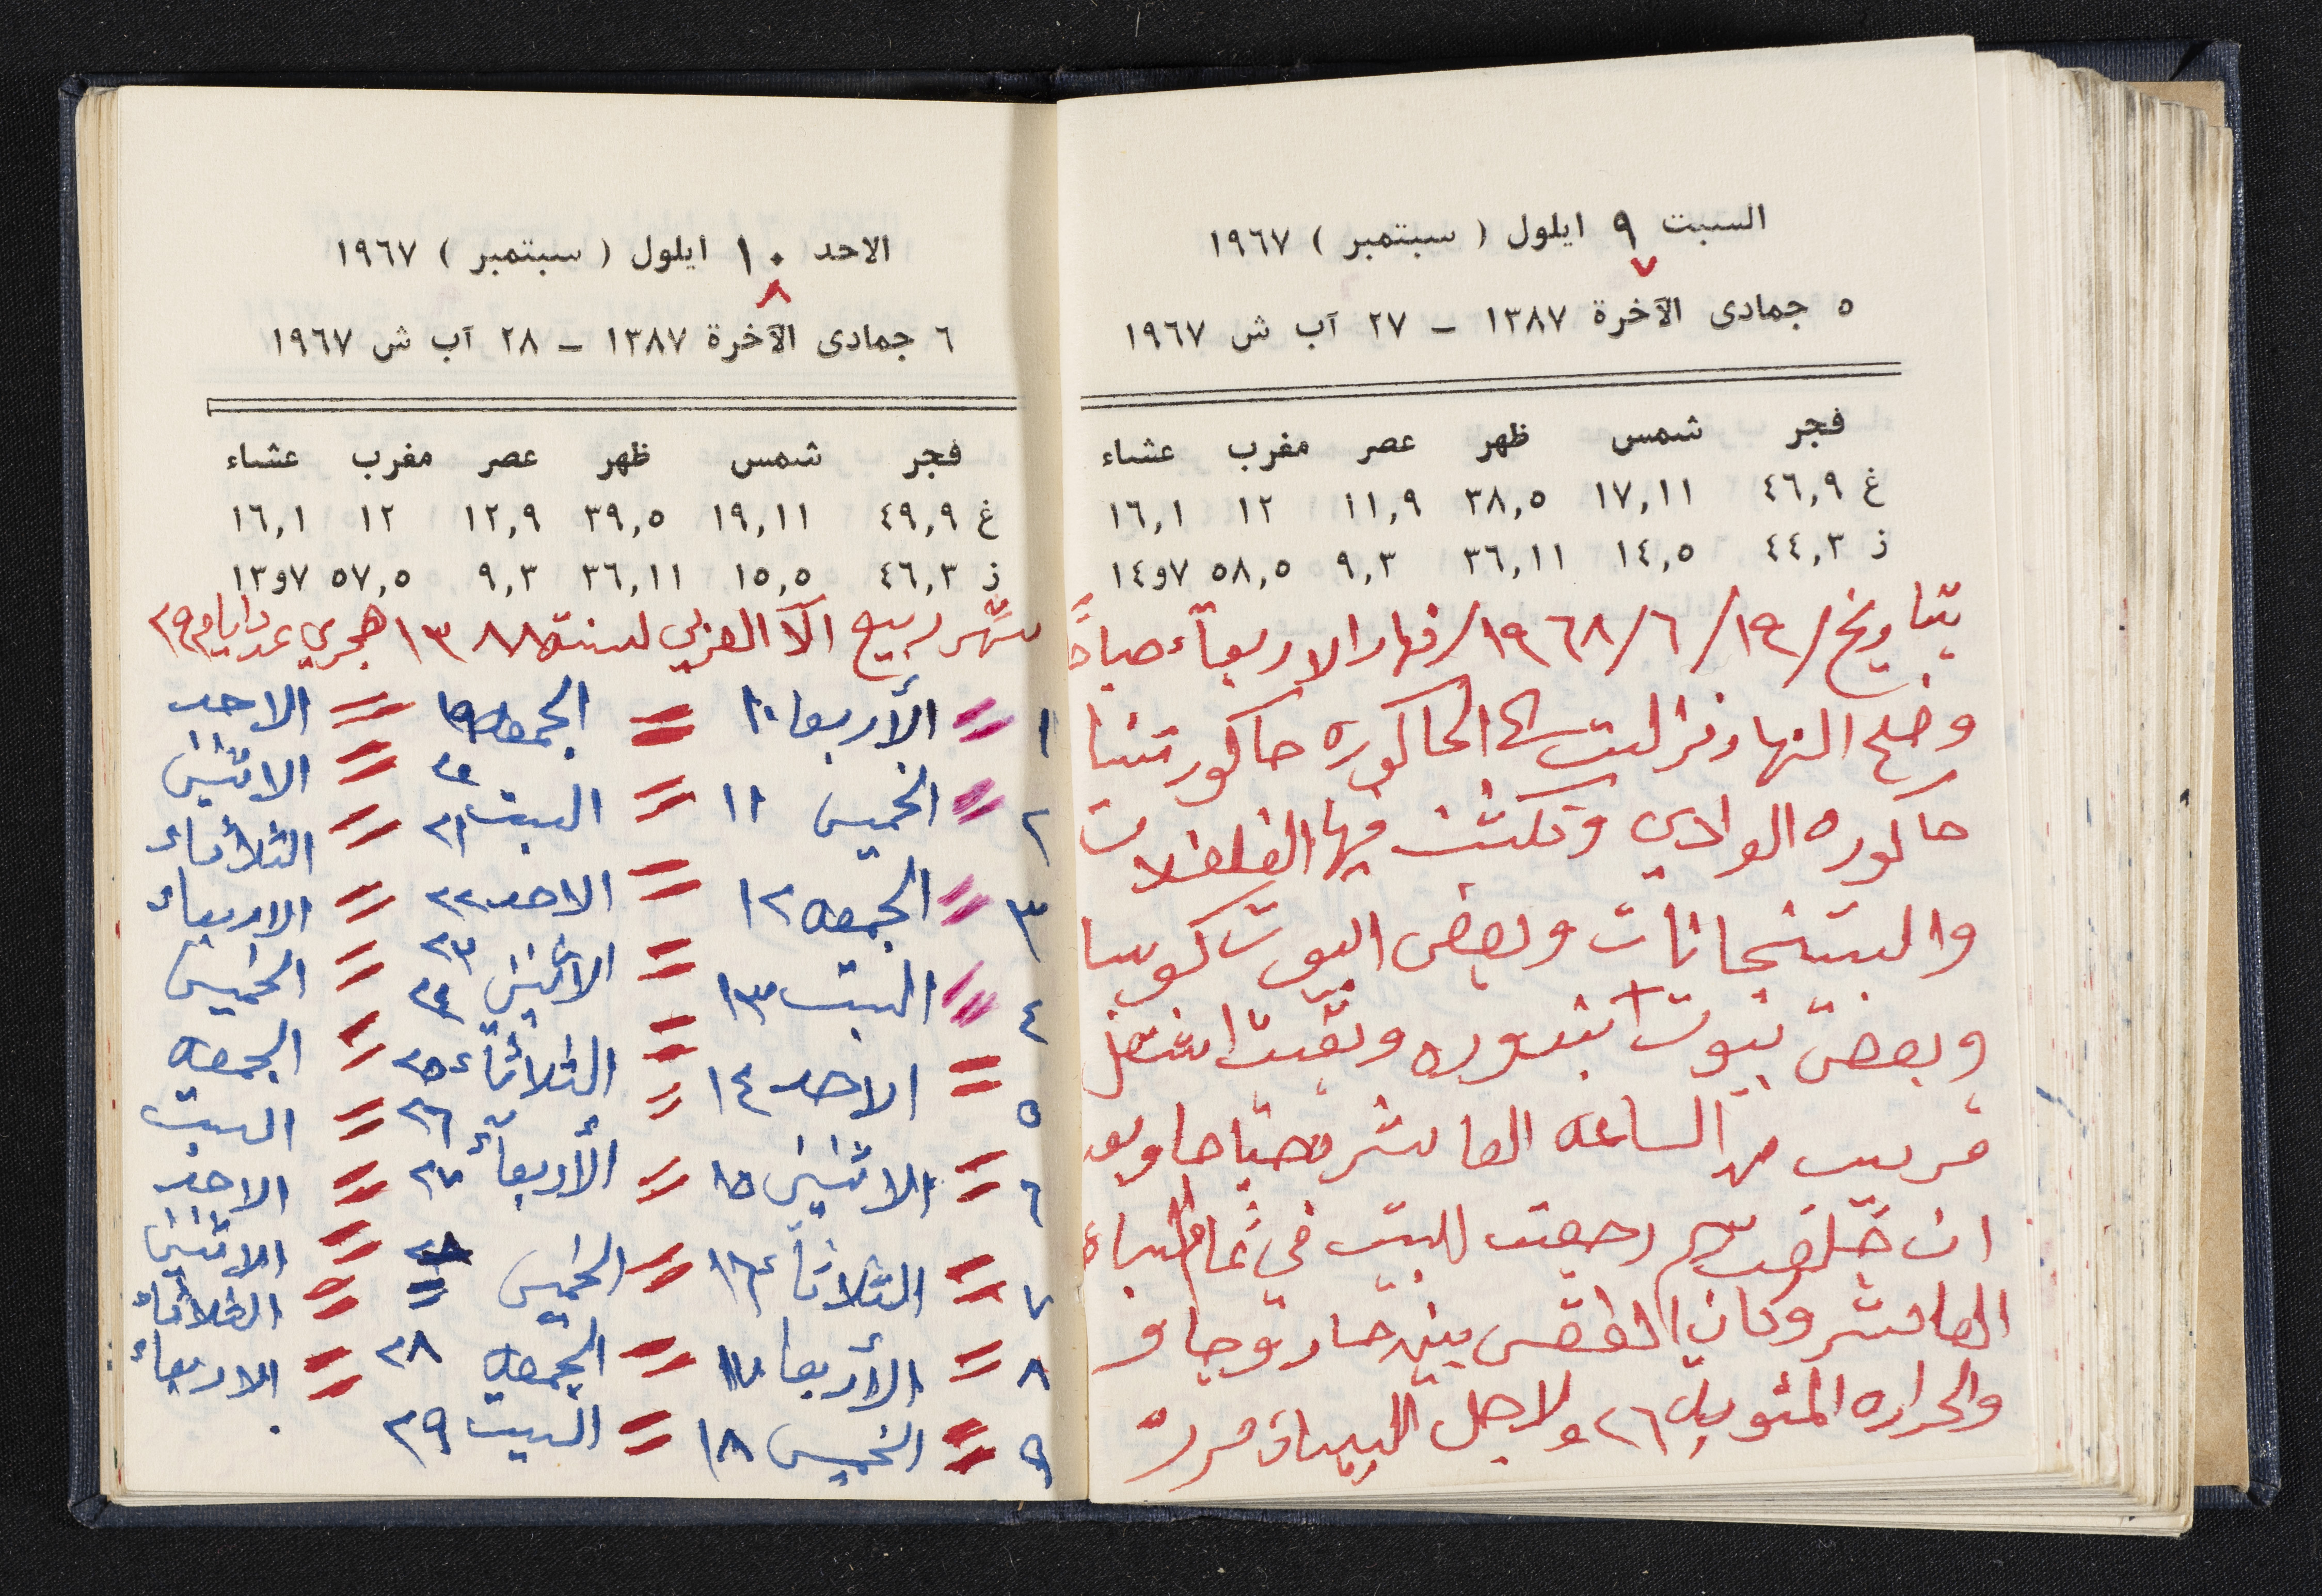 السبت ٩ ايلول ( سبتمبر ) ١٩٦٧
٧
٥ جمادى الآخرة ١٣٨٧ – ٢٧ آب ش ١٩٦٧
فجر شمس ظهر عصر مغرب عشاء
غ ٤٦,٩ ١٧,١١ ٣٨,٥ ١١,٩ ١٢ ١٦,١
ز ٤٤,٣ ١٤,٥ ٣٦,١١ ٩,٣ ٥٨,٥ ١٤و٧
بتاريخ /١٩/ ٦/ ١٩٦٨/ نهار الاربعآء صباحاً
وضلع النهار نزلت الى الحاكوره حاكورتنا
حاكوره الوادي ونكشت فيها الفلفلات
والبيتنجانات وبعض ابيوت كوسا
وبعض بيوت ابندوره وبقيت اشتغل
قريب من الساعه العاشره صباحا وبعد
ان خلصت رجعت للبيت في تمام الساعة
العاشره وكان الطقس بين حار وجاف و
والحراره المئويه ٢٦ ولاجل
الاحد ١٠ ايلول ( سبتمبر ) ١٩٦٧
٨
٦ جمادى الآخرة ١٣٨٧ – ٢٨ آب ش ١٩٦٧
فجر شمس ظهر عصر مغرب عشاء
غ ٤٩,٩ ١٩,١١ ٣٩,٥ ١٢,٩ ١٢ ١٦,١
ز ٤٦,٣ ١٥,٥ ٣٦,١١ ٩,٣ ٥٧,٥ ١٣و٧
شهر ربيع الآ العربي لسنة ١٣٨٨ هجري عدد ايامه ٢٩
١ = الأربعا ١٠ = الجمعه ١٩ = الاحد
٢ = الخميس ١١ = السبت ٢٠ = الاثنين
٣ = الجمعه ١٢ = الاحد ٢١ = الثلاثاء
٤ = السبت ١٣ = الاثنين ٢٢ = الاربعاء
٥ = الاحد ١٤ = الثلاثآء ٢٣ = الخميس
٦ = الاثنين ١٥ = الأربعآء ٢٤ = الجمعه
٧ = الثلاثآء ١٦ = الخميس ٢٥ = السبت
٨ = الأربعا ١٧ = الجمعه ٢٦ = الاحد
٩ = الخميس ١٨ = السبت ٢٧ = الاثنين
٢٨ = الثلاثاء
٢٩ = الاربعاء